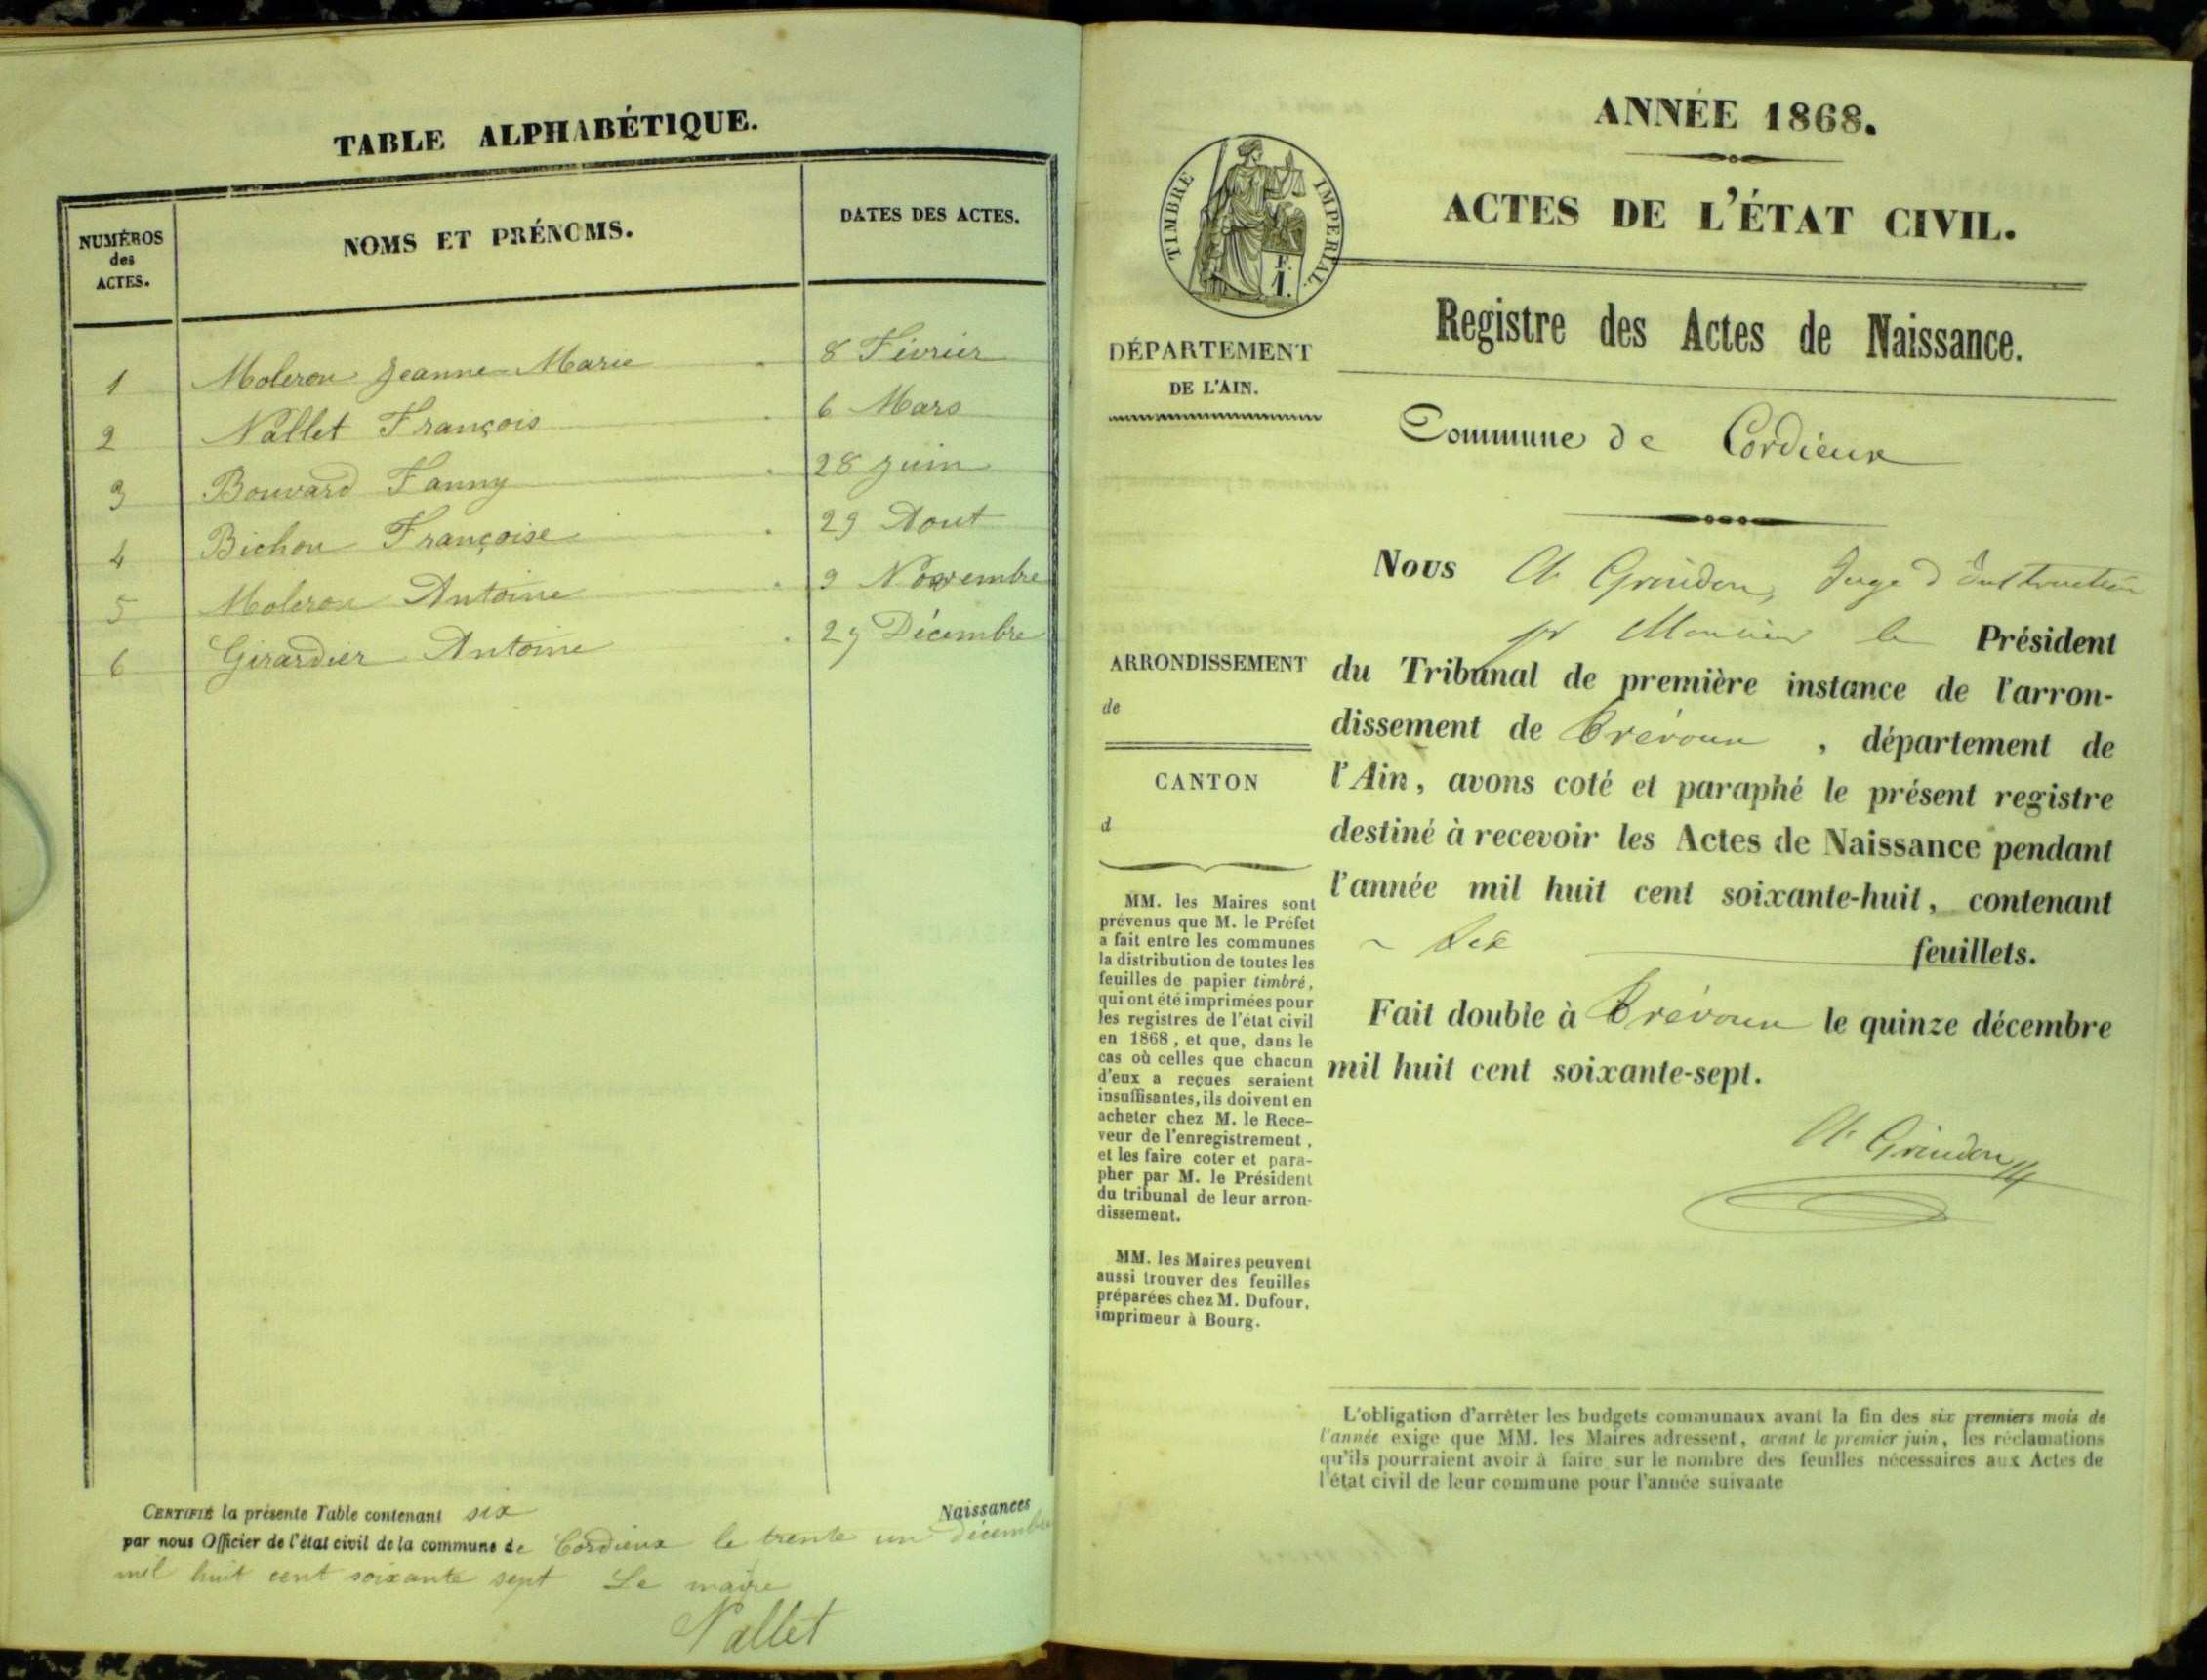 TABLE ALPHABÉTIQUE.
NUMÉROS
des
ACTES.
NOMS ET PRÉNOMS.
DATES DES ACTES.
1 Moleron Jeanne Marie 8 Février
2 Nallet François 6 Mars
3 Bouvard Fanny 28 juin
4 Bichon Françoise 29 Aout
5 Moleron Antoine 9 Novembre
6 Girardier Antoine 29 Décembre
CERTIFIÉ la présente Table contenant six Naissances
par nous Officier de l'état civil de la commune de Cordieux le trente un décembre
mil huit cent soixante sept Le maire
Nallet
ANNÉE 1868.
ACTES DE L'ÉTAT CIVIL.
TIMBRE IMPÉRIAL.
F.
1.
Registre des Actes de Naissance.
DÉPARTEMENT
DE L'AIN.
Commune de Cordieux
ARRONDISSEMENT
de
CANTON
d
MM. les Maires sont
prévenus que M. le Préfet
a fait entre les communes
la distribution de toutes les
feuilles de papier timbré,
qui ont été imprimées pour
les registres de l'état civil
en 1868, et que, dans le
cas où celles que chacun
d'eux a reçues seraient
insuffisantes, ils doivent en
acheter chez M. le Rece-
veur de l'enregistrement,
et les faire coter et para-
pher par M. le Président
du tribunal de leur arron-
dissement.
MM. les Maires peuvent
aussi trouver des feuilles
préparées chez M. Dufour,
imprimeur à Bourg.
Nous Grindon, Juge d'Instruction
pr Monsieur le Président
du Tribunal de première instance de l'arron-
dissement de Trévoux, département de
l'Ain, avons coté et paraphé le présent registre
destiné à recevoir les Actes de Naissance pendant
l'année mil huit cent soixante-huit, contenant
feuillets.
Fait double à Trévoux le quinze décembre
mil huit cent soixante-sept.
Grindon
L'obligation d'arrêter les budgets communaux avant la fin des six premiers mois de
l'année exige que MM. les Maires adressent, avant le premier juin, les réclamations
qu'ils pourraient avoir à faire sur le nombre des feuilles nécessaires aux Actes de
l'état civil de leur commune pour l'année suivante